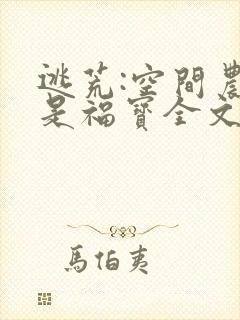 逃荒:空間農
是福寶全文
馬伯夷